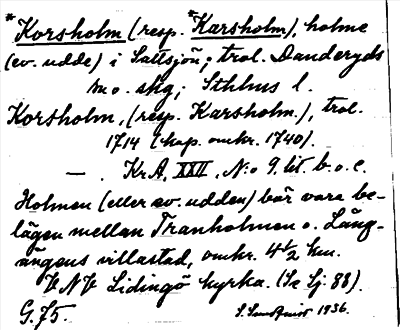 *Korsholm (resp. *Karsholm), holme
(ev. udde) i Saltsjön; trol. Danderyds
m. o. skg; Sthlms l.
Korsholm, (resp. Karsholm.), trol.
1714 (kap. omkr. 1740).
— . Kr. A, XXII, N:o 9. lit. b. o. c.
Holmen (eller ev. udden) bär vara be-
lägen mellan Tranholmen o. Läng-
ängens villastad, omkr. 4½ km.
V. N. V. Lidingö kyrka. (Se Lj 88).
G. 75. 1936.